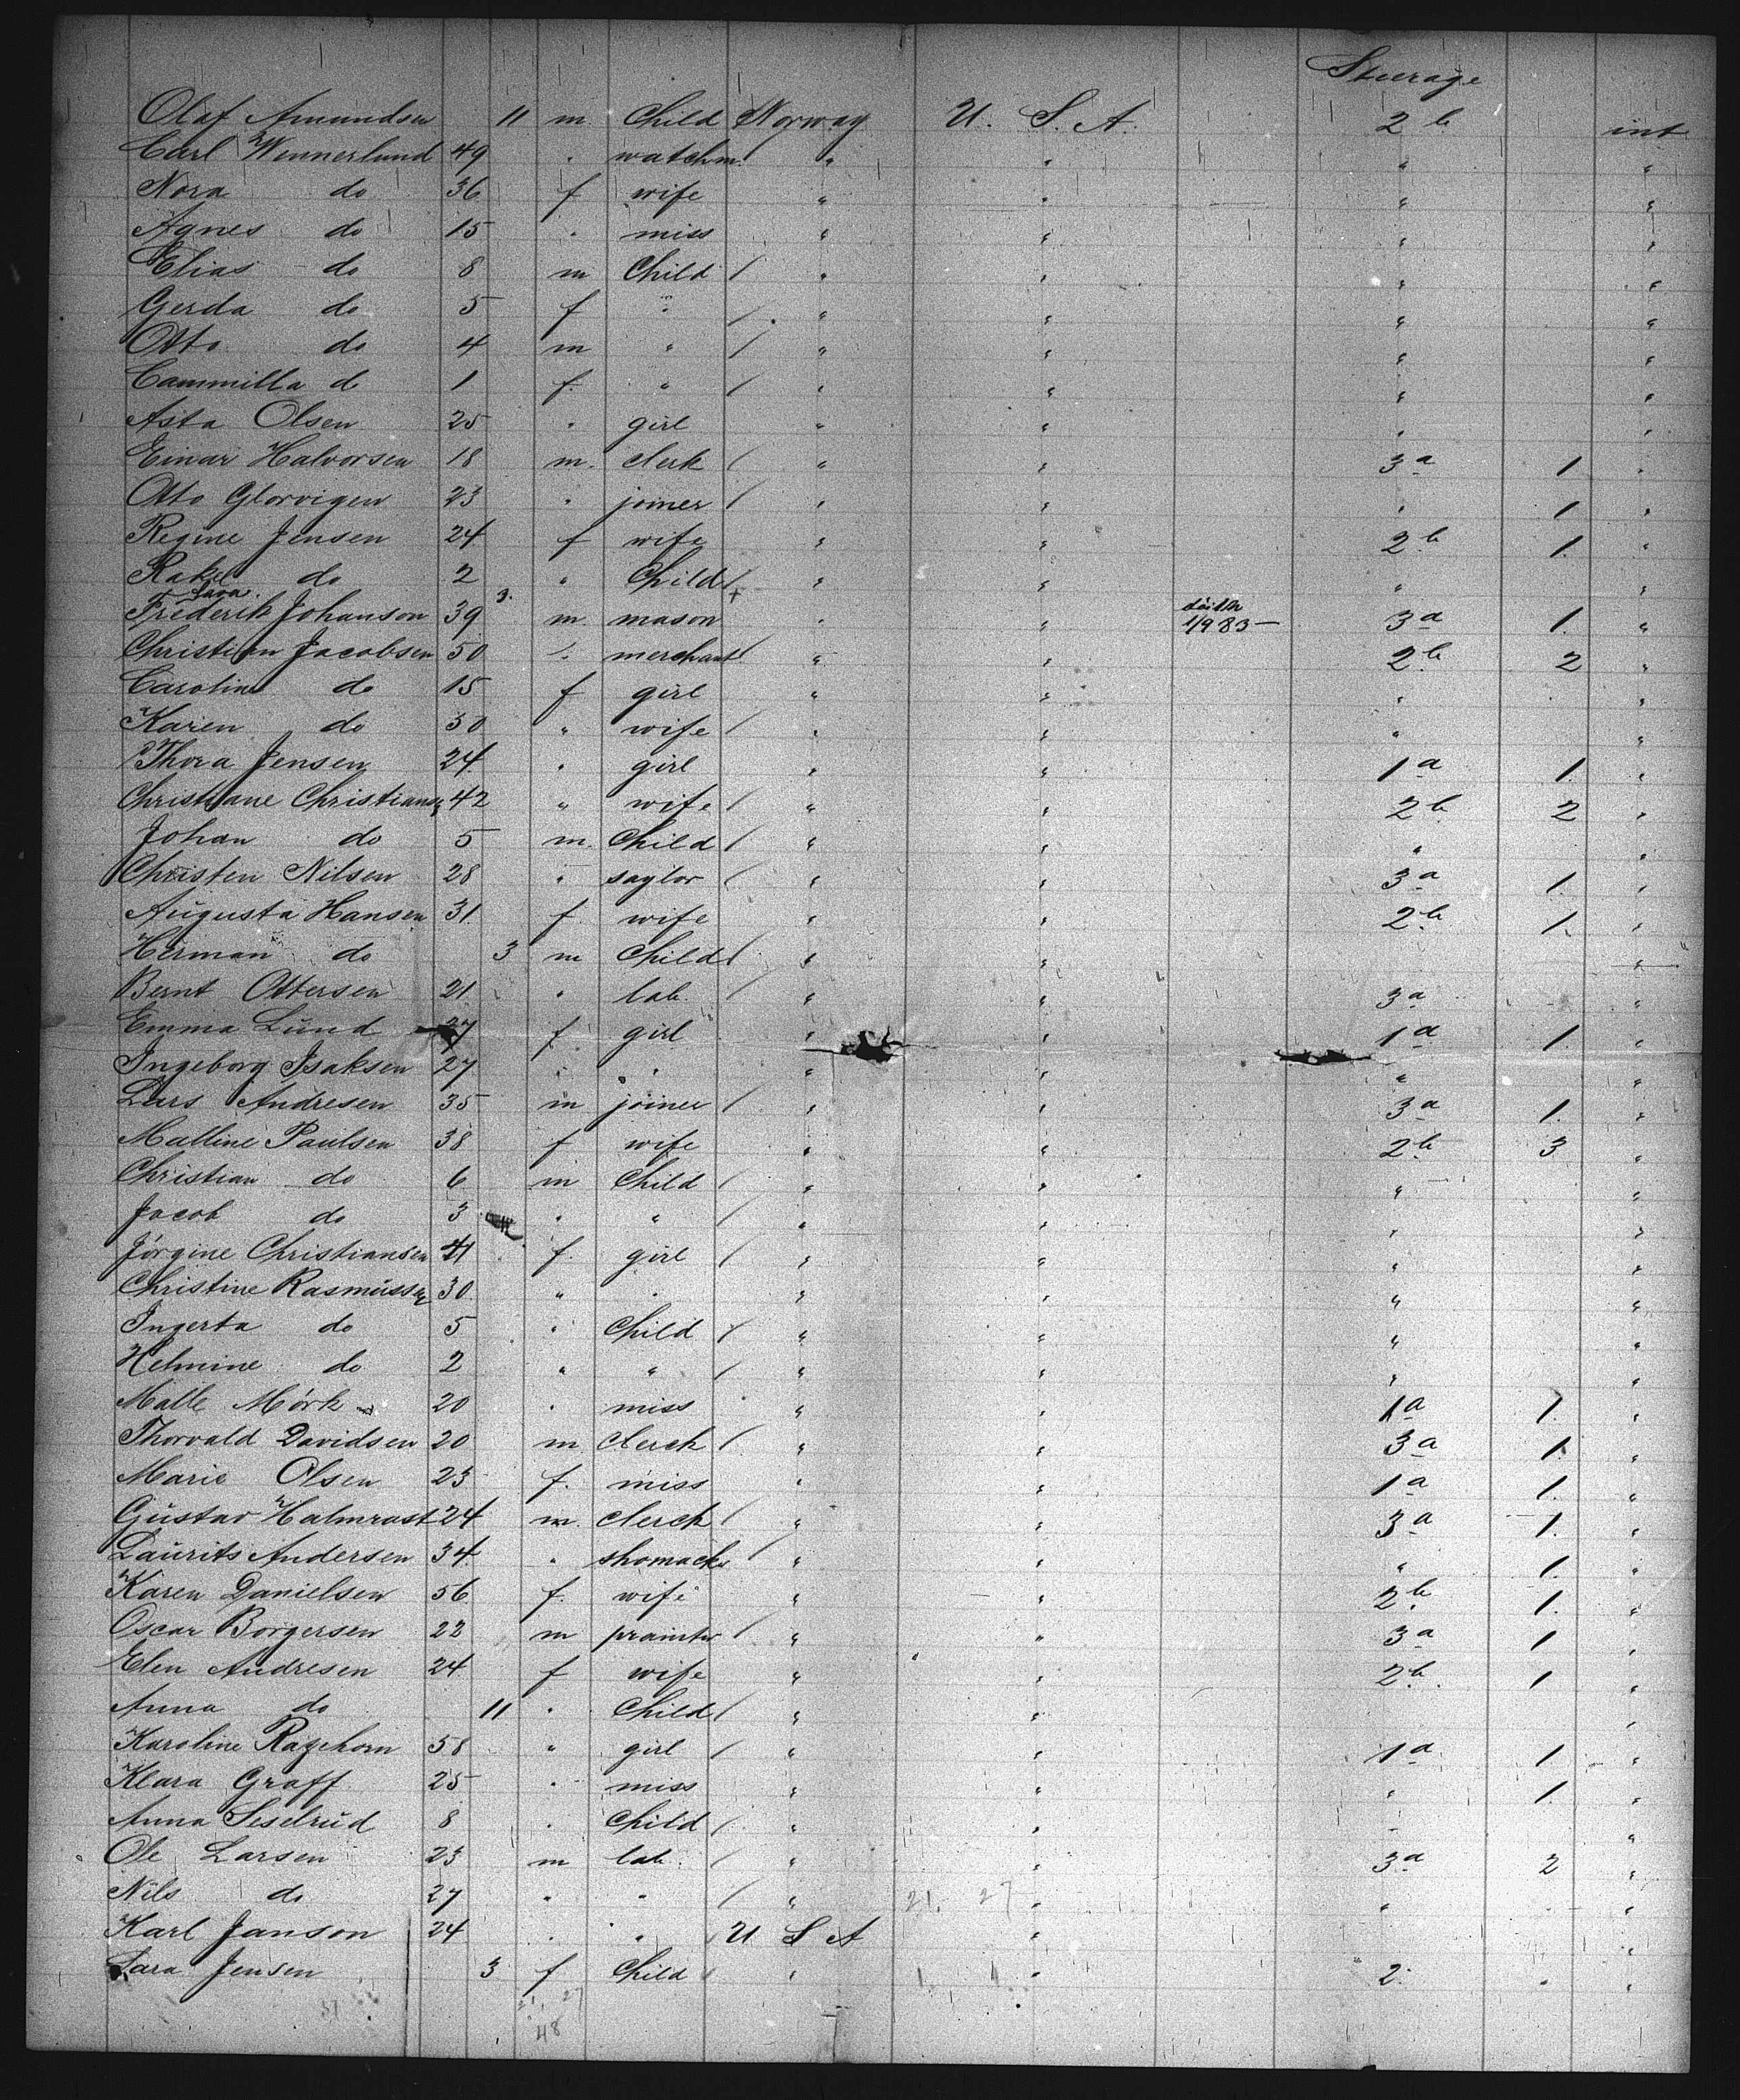 Steerage
Olaf Amundsen 11 m. Child Norway U. S. A. 2b int
Carl Wennerlund 49 " watchm. " " " "
Nora do 36 f wife " " " "
Agnes do 15 " miss " " " "
Elias do 8 m Child / " " " "
Gerda do 5 f " / " " " "
Otto do 4 m " / " " " "
Cammilla d 1 f. " / " " " "
Asta Olsen 25 " girl " " " "
Einar Halvorsen 18 m. clerk / " " 3a 1 "
Otto Glorvigen 23 " joiner / " " " 1 "
Regine Jensen 24 f wife " " 2b 1. "
Rakel do 2 " Child / " " "
Sara. 3. +
Frederik Johanson 39 m. mason " " 1/9 83 — 3a 1. "
Christian Jacobsen 50 " merchant " " 2b 2 "
Caroline do 15 f girl " " " "
Karen do 50 " wife / " " " "
Thora Jensen 24. " girl " " 1a 1. "
Christiane Christians 42 " wife / " " 2b 2 "
Johan do 5 m. Child / " " " "
Christen Nilsen 28 " saylor / " " 3a 1. "
Augusta Hansen 31 f wife " " 2b 1. "
Herman do 3 m Child / " " "
Bernt Ottersen 21 " lab. / " " 3a "
Emma Lund 27 f girl " " 1a 1 "
Ingeborg Isaksen 27 " " " " " "
Lars Andresen 35 m joiner / " " 3a 1. "
Malline Paulsen 38 f wife " " 2b 3 "
Christian do 6 m Child / " " " "
Jacob do 3 " " / " " " "
Jörgine Christiansen 41 f. girl / " " " "
Christine Rasmussen 30. " " " " " "
Ingerta do 5 " Child / " " " "
Helmine do 2 " " / " " " "
Malle Mörk 20 " miss " " 1a 1. "
Thorvald Davidsen 20 m clerck / " " 3a 1. "
Marie Olsen 23 f. miss " " 1a 1. "
Gustav Halmrast 24 m. clerck / " " 3a 1. "
Laurits Andersen 34. " shomack / " " " 1. "
Karen Danielsen 56 f. wife " " 2b. 1. "
Oscar Borgersen 22 m prainter / " " 3a 1 "
Elen Andresen 24 f wife " " 2b. 1 "
Anna do 11 " Child / " " "
Karoline Razehorn 58 " girl / " " 1a 1. "
Klara Graff 25 " miss " " " 1. "
Anna Seselrud 8 " Child / " " "
Ole Larsen 23 m lab. / " " 3a 2 "
Nils do 27 " " / " 21. 27 " " "
Karl Janson 24 " " / U S A " "
Sara Jensen 3 f Child / " " 2. "
21, 27
48